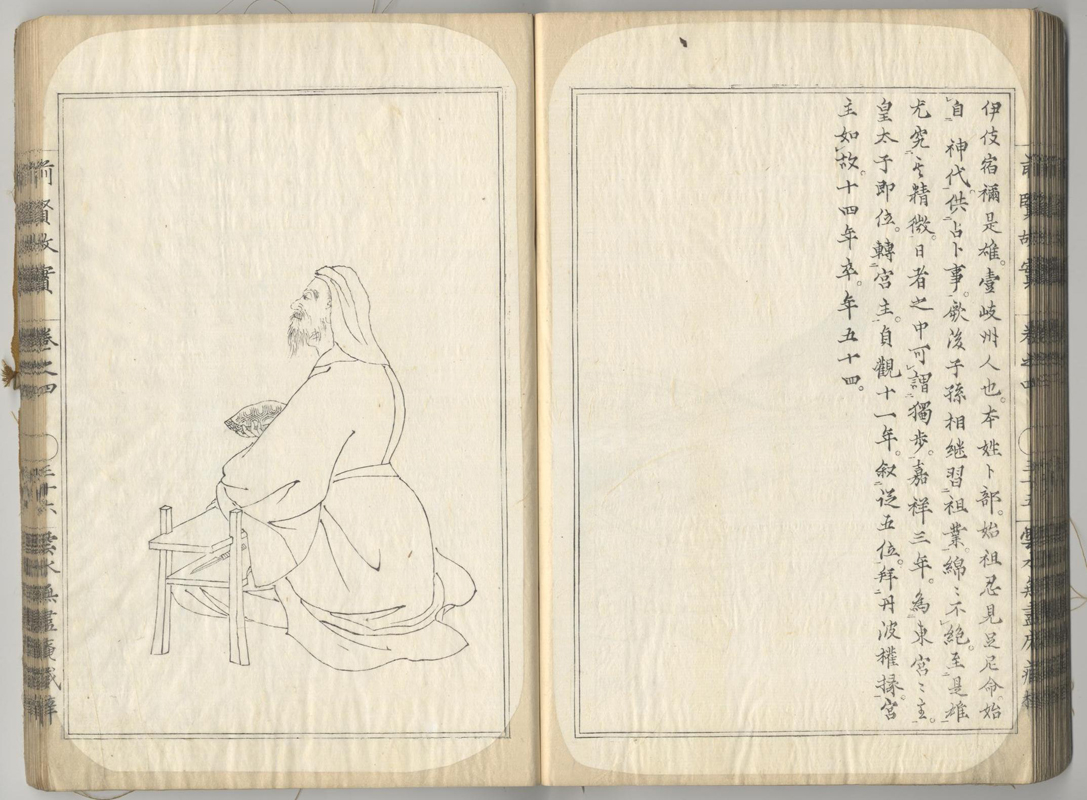 伊伎宿禰是雄。壹岐州人也。本姓卜部。始祖忍見足尼命始
自 神代。供占卜事。厥後子孫相継習祖業。綿〻不絶。至是雄
尤究其精微。日者之中可謂獨歩。嘉祥三年。為東宮〻主。
皇太子即位。轉宮主。貞觀十一年。叙従五位。拜丹波權掾。宮
主如故。十四年卒。年五十四。
前賢故實 卷之四 三十五
前賢故實 卷之四 三十六 雲水無盡